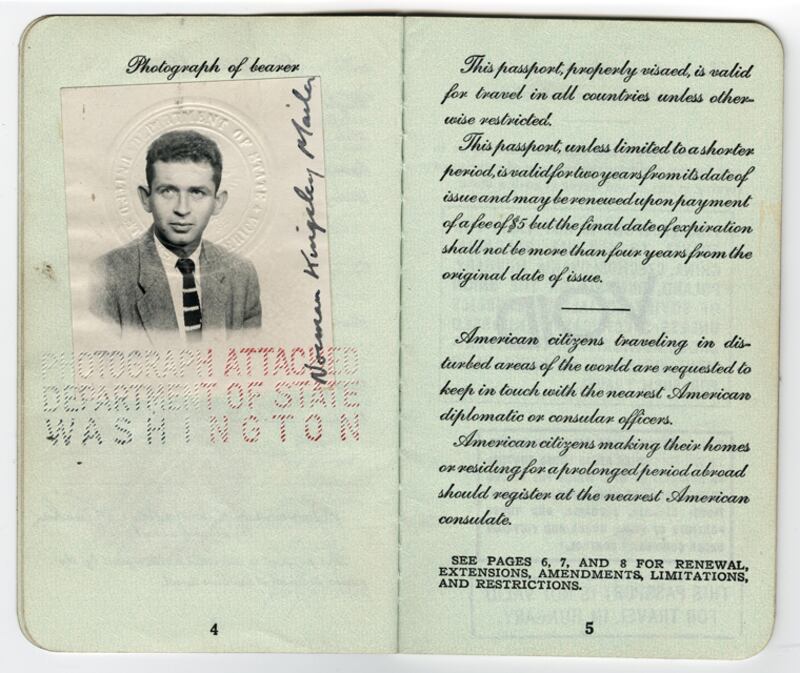 Photograph of bearer
DEPARTMENT OF STATE
Norman Kingsley Mailer
PHOTOGRAPH ATTACHED
DEPARTMENT OF STATE
WASHINGTON
4
This passport, properly visaed, is valid
for travel in all countries unless other-
wise restricted.
This passport, unless limited to a shorter
period, is valid for two years from its date of
issue and may be renewed upon payment
of a fee of $5 but the final date of expiration
shall not be more than four years from the
original date of issue.
American citizens traveling in dis-
turbed areas of the world are requested to
keep in touch with the nearest American
diplomatic or consular officers.
American citizens making their homes
or residing for a prolonged period abroad
should register at the nearest American
consulate.
SEE PAGES 6, 7, AND 8 FOR RENEWAL,
EXTENSIONS, AMENDMENTS, LIMITATIONS,
AND RESTRICTIONS.
VOID
THIS PASSPORT
FOR TRAVEL IN HUNGARY
5